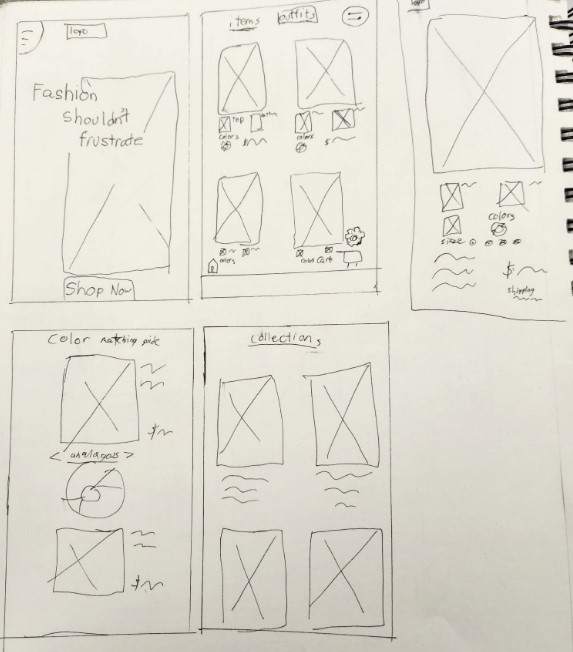 logo
Fashion
Shouldn't
frustrate
Shop Now
items outfits
top
colors colors
$ $
colors cart
logo
colors
size
$
shipping
Color matching guide
$
< analagous >
$
collections